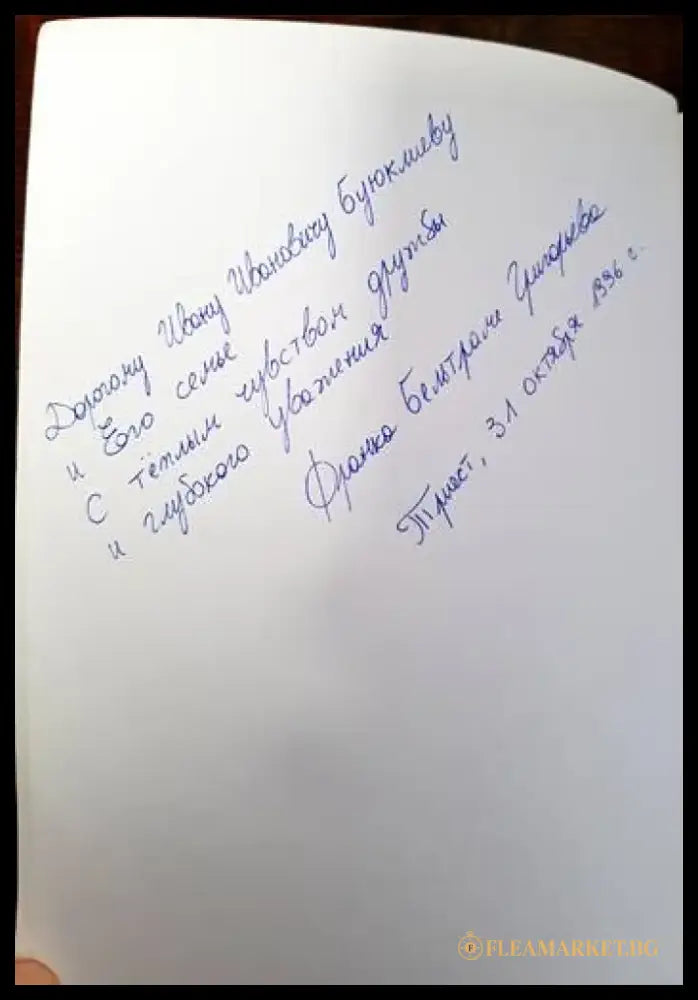 Дорогому Ивану Ивановичу Буюклиеву
и Его семье
С тёплым чувством дружбы
и глубокого уважения
Франка Бельтраме Григорьева
Триест, 31 октября 1996 г.
FLEAMARKET.BG